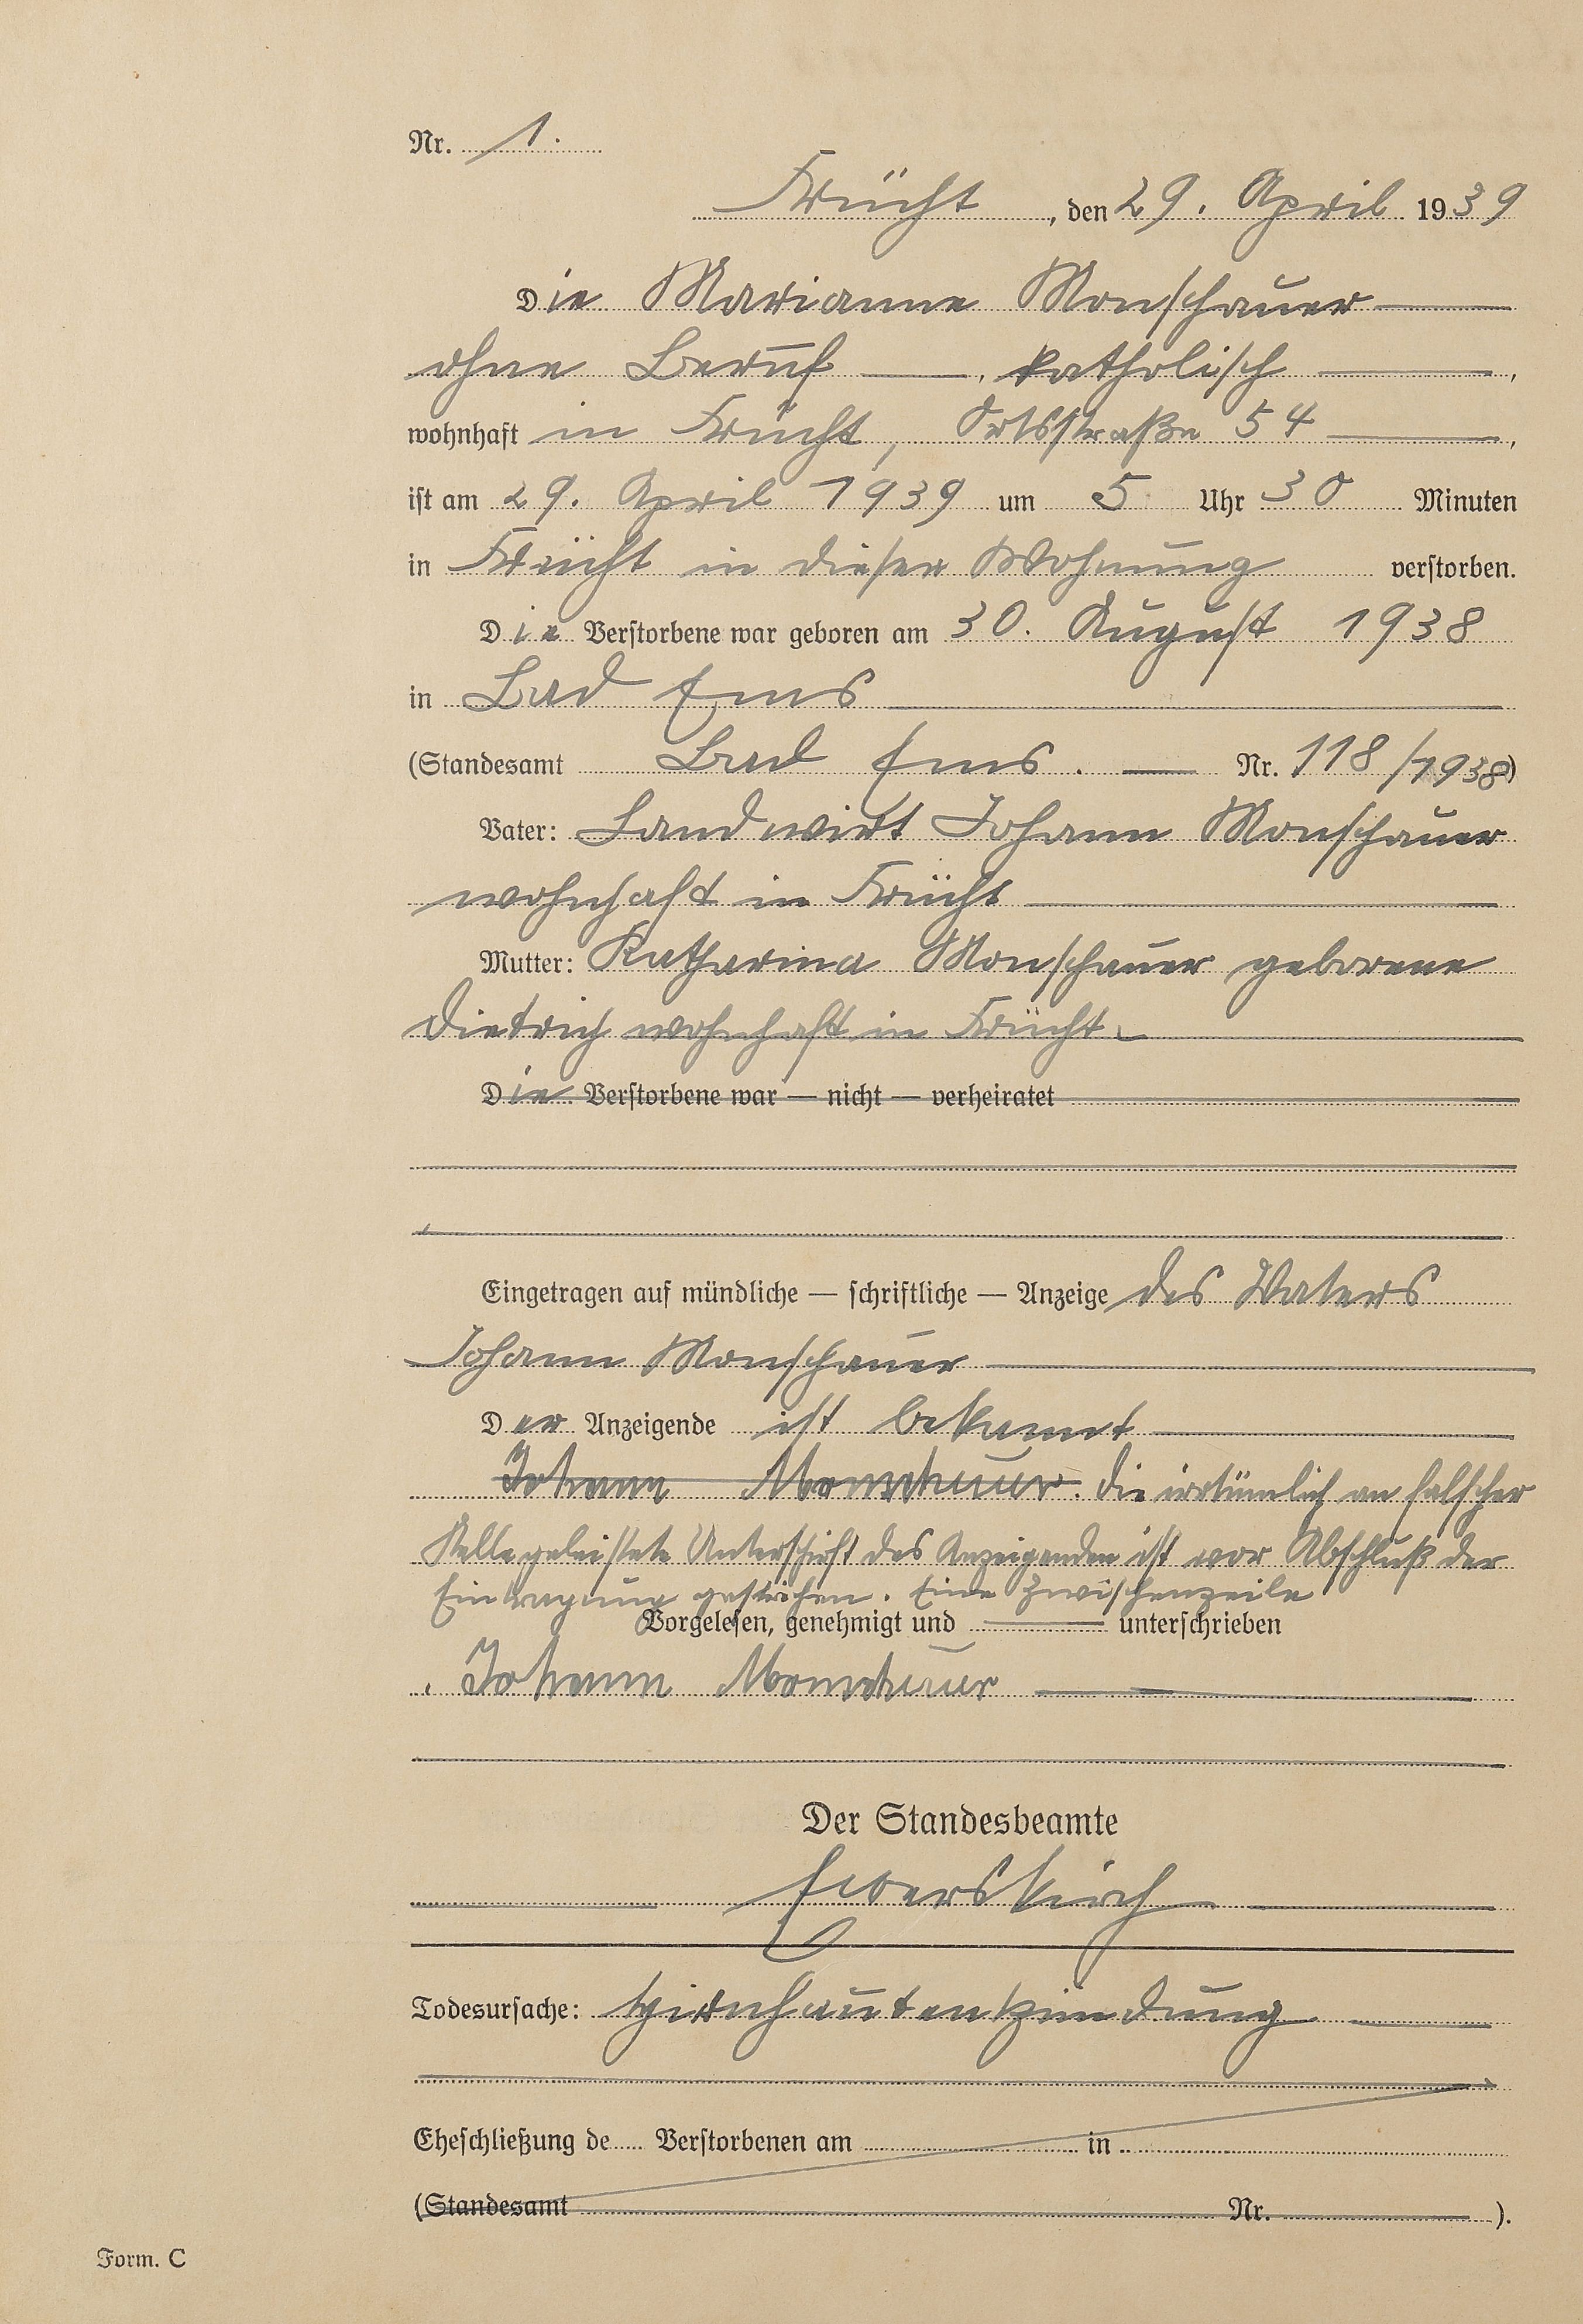 Nr. 1.
Frücht, den 29. April 1939
Die Marianne Monschauer
ohne Beruf, katholisch,
wohnhaft in Frücht, Ortsstraße 54,
ist am 29. April 1939 um 5 Uhr 30 Minuten
in Frücht in dieser Wohnung verstorben.
Die Verstorbene war geboren am 30. August 1938
in Bad Ems
(Standesamt Bad Ems. — Nr. 118/1938)
Vater: Landwirt Johann Monschauer
wohnhaft in Frücht
Mutter: Katharina Monschauer geborene
Dietrich wohnhaft in Frücht.
Die Verstorbene war — nicht — verheiratet
Eingetragen auf mündliche — schriftliche — Anzeige des Vaters
Johann Monschauer
Der Anzeigende ist bekannt
Johann Monschauer. Die irrtümlich an falscher
Stelle geleistete Unterschrift des Anzeigenden ist vor Abschluß der
Eintragung gestrichen. Eine Zwischenzeile
Vorgelesen, genehmigt und unterschrieben
Johann Monschauer
Der Standesbeamte
Ewerskirch
Todesursache: Hirnhautentzündung
Eheschließung de Verstorbenen am in
(Standesamt Nr. ).
Form. C